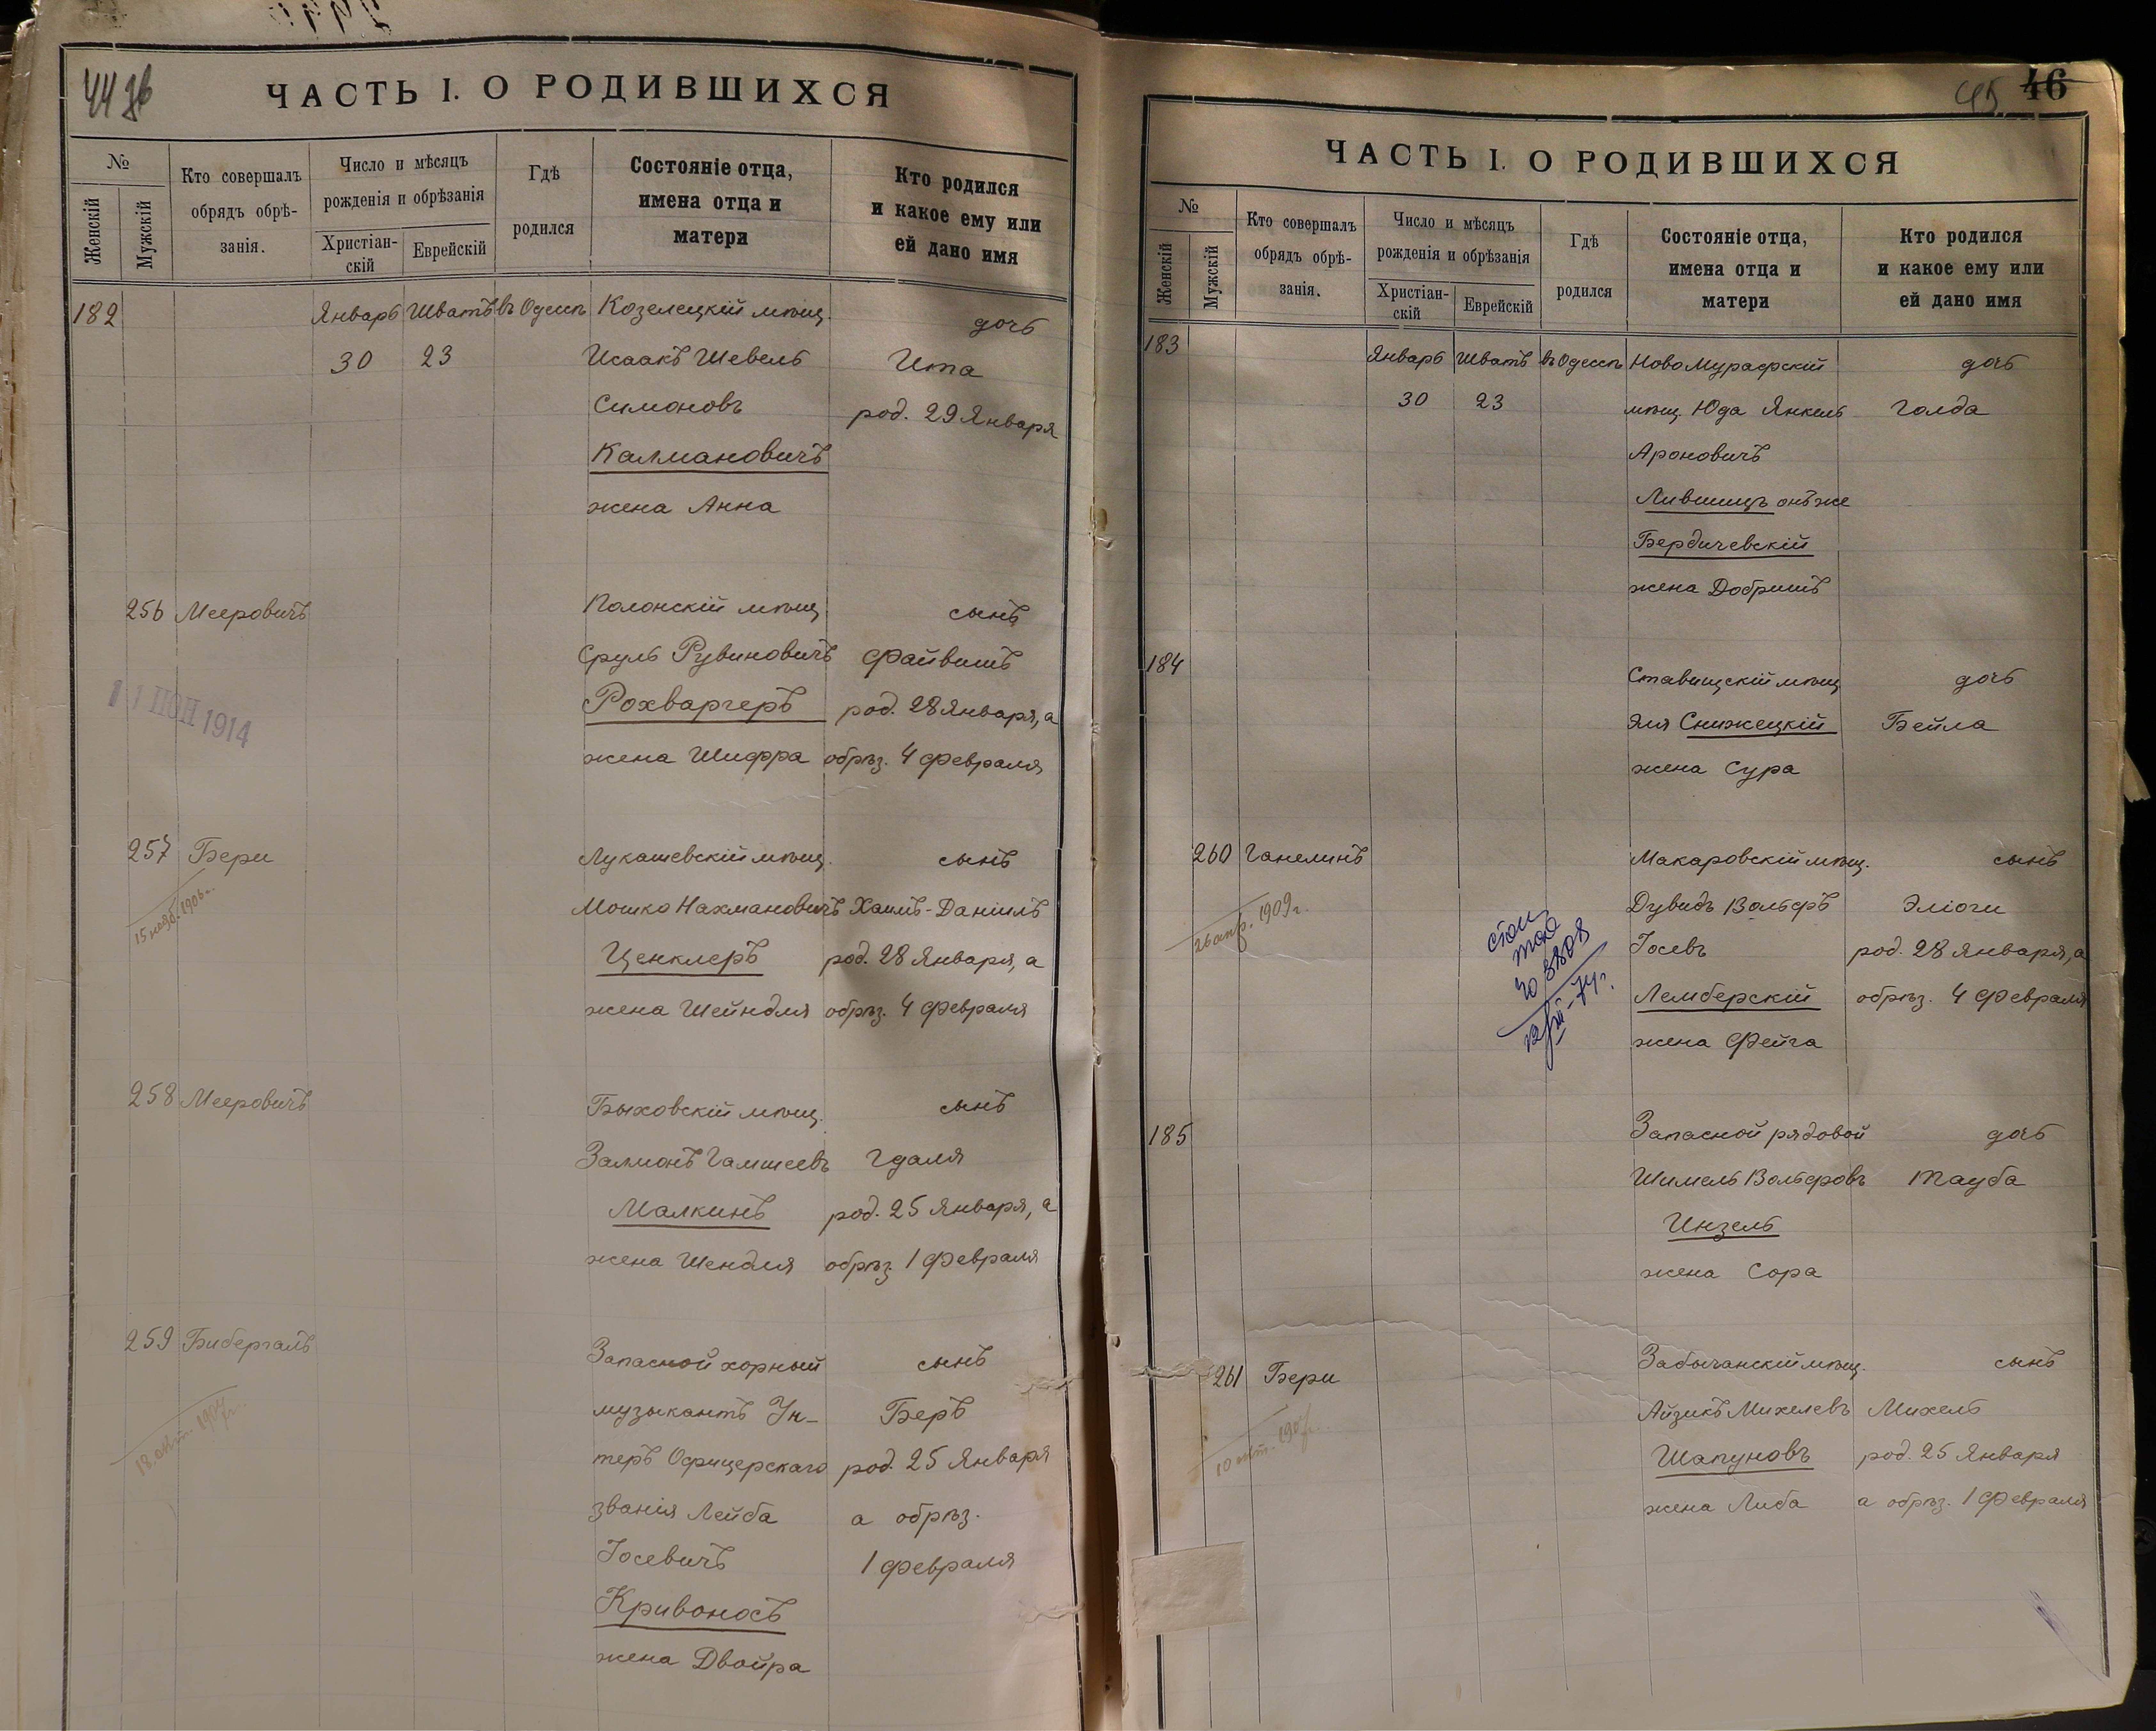 ЧАСТЬ I. О РОДИВШИХСЯ
№
Женскій
Мужскій
Кто совершалъ
обрядъ обрѣ-
занія.
Число и мѣсяцъ
рожденія и обрѣзанія
Христіан-
скій
Еврейскій
Гдѣ
родился
Состояніе отца,
имена отца и
матери
Кто родился
и какое ему или
ей дано имя
182 Январь Шватъ въ Одессѣ Козелецкій мѣщ. дочь
30 23 Исаакъ Шевель Ита
Симоновъ род. 29 Января
Калмановичъ
жена Анна
256 Мееровичъ Полонскій мѣщ. сынъ
Сруль Рувиновичъ Файвишъ
Рохваргеръ род. 28 Января, а
11 ИЮН 1914
жена Шифра обрѣз. 4 Февраля
257 Бери Лукашевскій мѣщ. сынъ
15 нояб. 1906 г.
Мошко Нахмановичъ Хаимъ-Даніилъ
Ценклеръ род. 28 Января, а
жена Шейндля обрѣз. 4 Февраля
258 Мееровичъ Быховскій мѣщ. сынъ
Залмонъ Гамшеевъ Гдаля
Малкинъ род. 25 Января, а
жена Шендля обрѣз. 1 Февраля
259 Бибергалъ Запасной хорный сынъ
музыкантъ Ун- Беръ
18 окт.
теръ Офицерскаго род. 25 Января
званія Лейба а обрѣз.
Іосевичъ 1 Февраля
Кривоносъ
жена Двойра
45. 46
ЧАСТЬ I. О РОДИВШИХСЯ
№
Женскій
Мужскій
Кто совершалъ
обрядъ обрѣ-
занія.
Число и мѣсяцъ
рожденія и обрѣзанія
Христіан-
скій
Еврейскій
Гдѣ
родился
Состояніе отца,
имена отца и
матери
Кто родился
и какое ему или
ей дано имя
183 Январь Шватъ въ Одессѣ НовоМурафскій дочь
30 23 мѣщ. Юда Янкель Голда
Ароновичъ
Лившицъ онъ же
Бердичевскій
жена Добришъ
184 Ставищскій мѣщ. дочь
Эля Снижецкій Бейла
жена Сура
260 Ганелинъ Макаровскій мѣщ. сынъ
26 апр. 1909 г.
Дувидъ Вольфъ Эліоги
Іосевъ род. 28 Января, а
Лемберскій обрѣз. 4 Февраля
жена Фейга
185 Запасной рядовой дочь
Шимель Вольфовъ Тауба
Инзель
жена Сора
261 Бери Забычанскій мѣщ. сынъ
10 окт.
Айзикъ Михелевъ Михель
Шапуновъ род. 25 Января
жена Либа а обрѣз. 1 Февраля